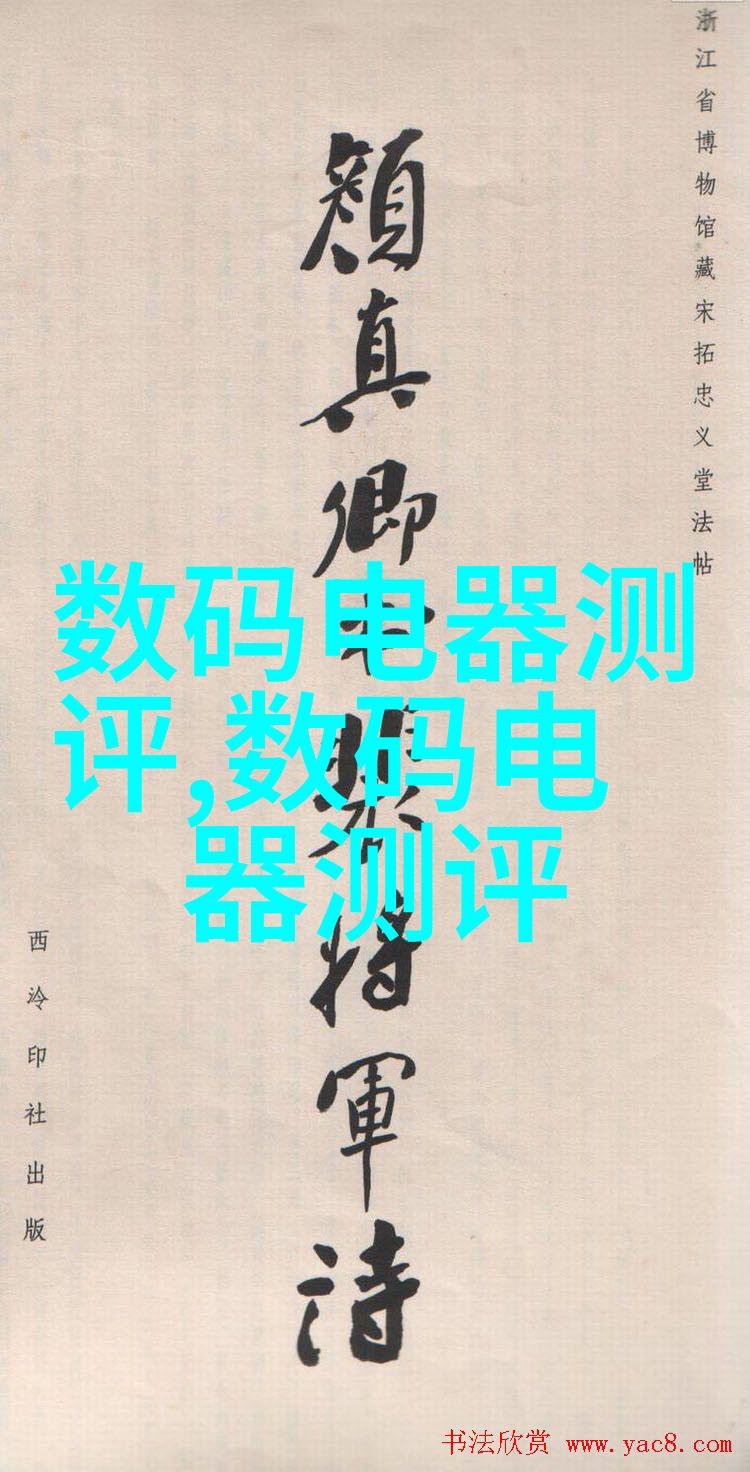 浙江省博物馆藏宋拓忠义堂法帖
颜真卿书裴将军诗
数码电器测
评,数码电
器测评
西泠印社出版
书法欣赏 www.yac8.com